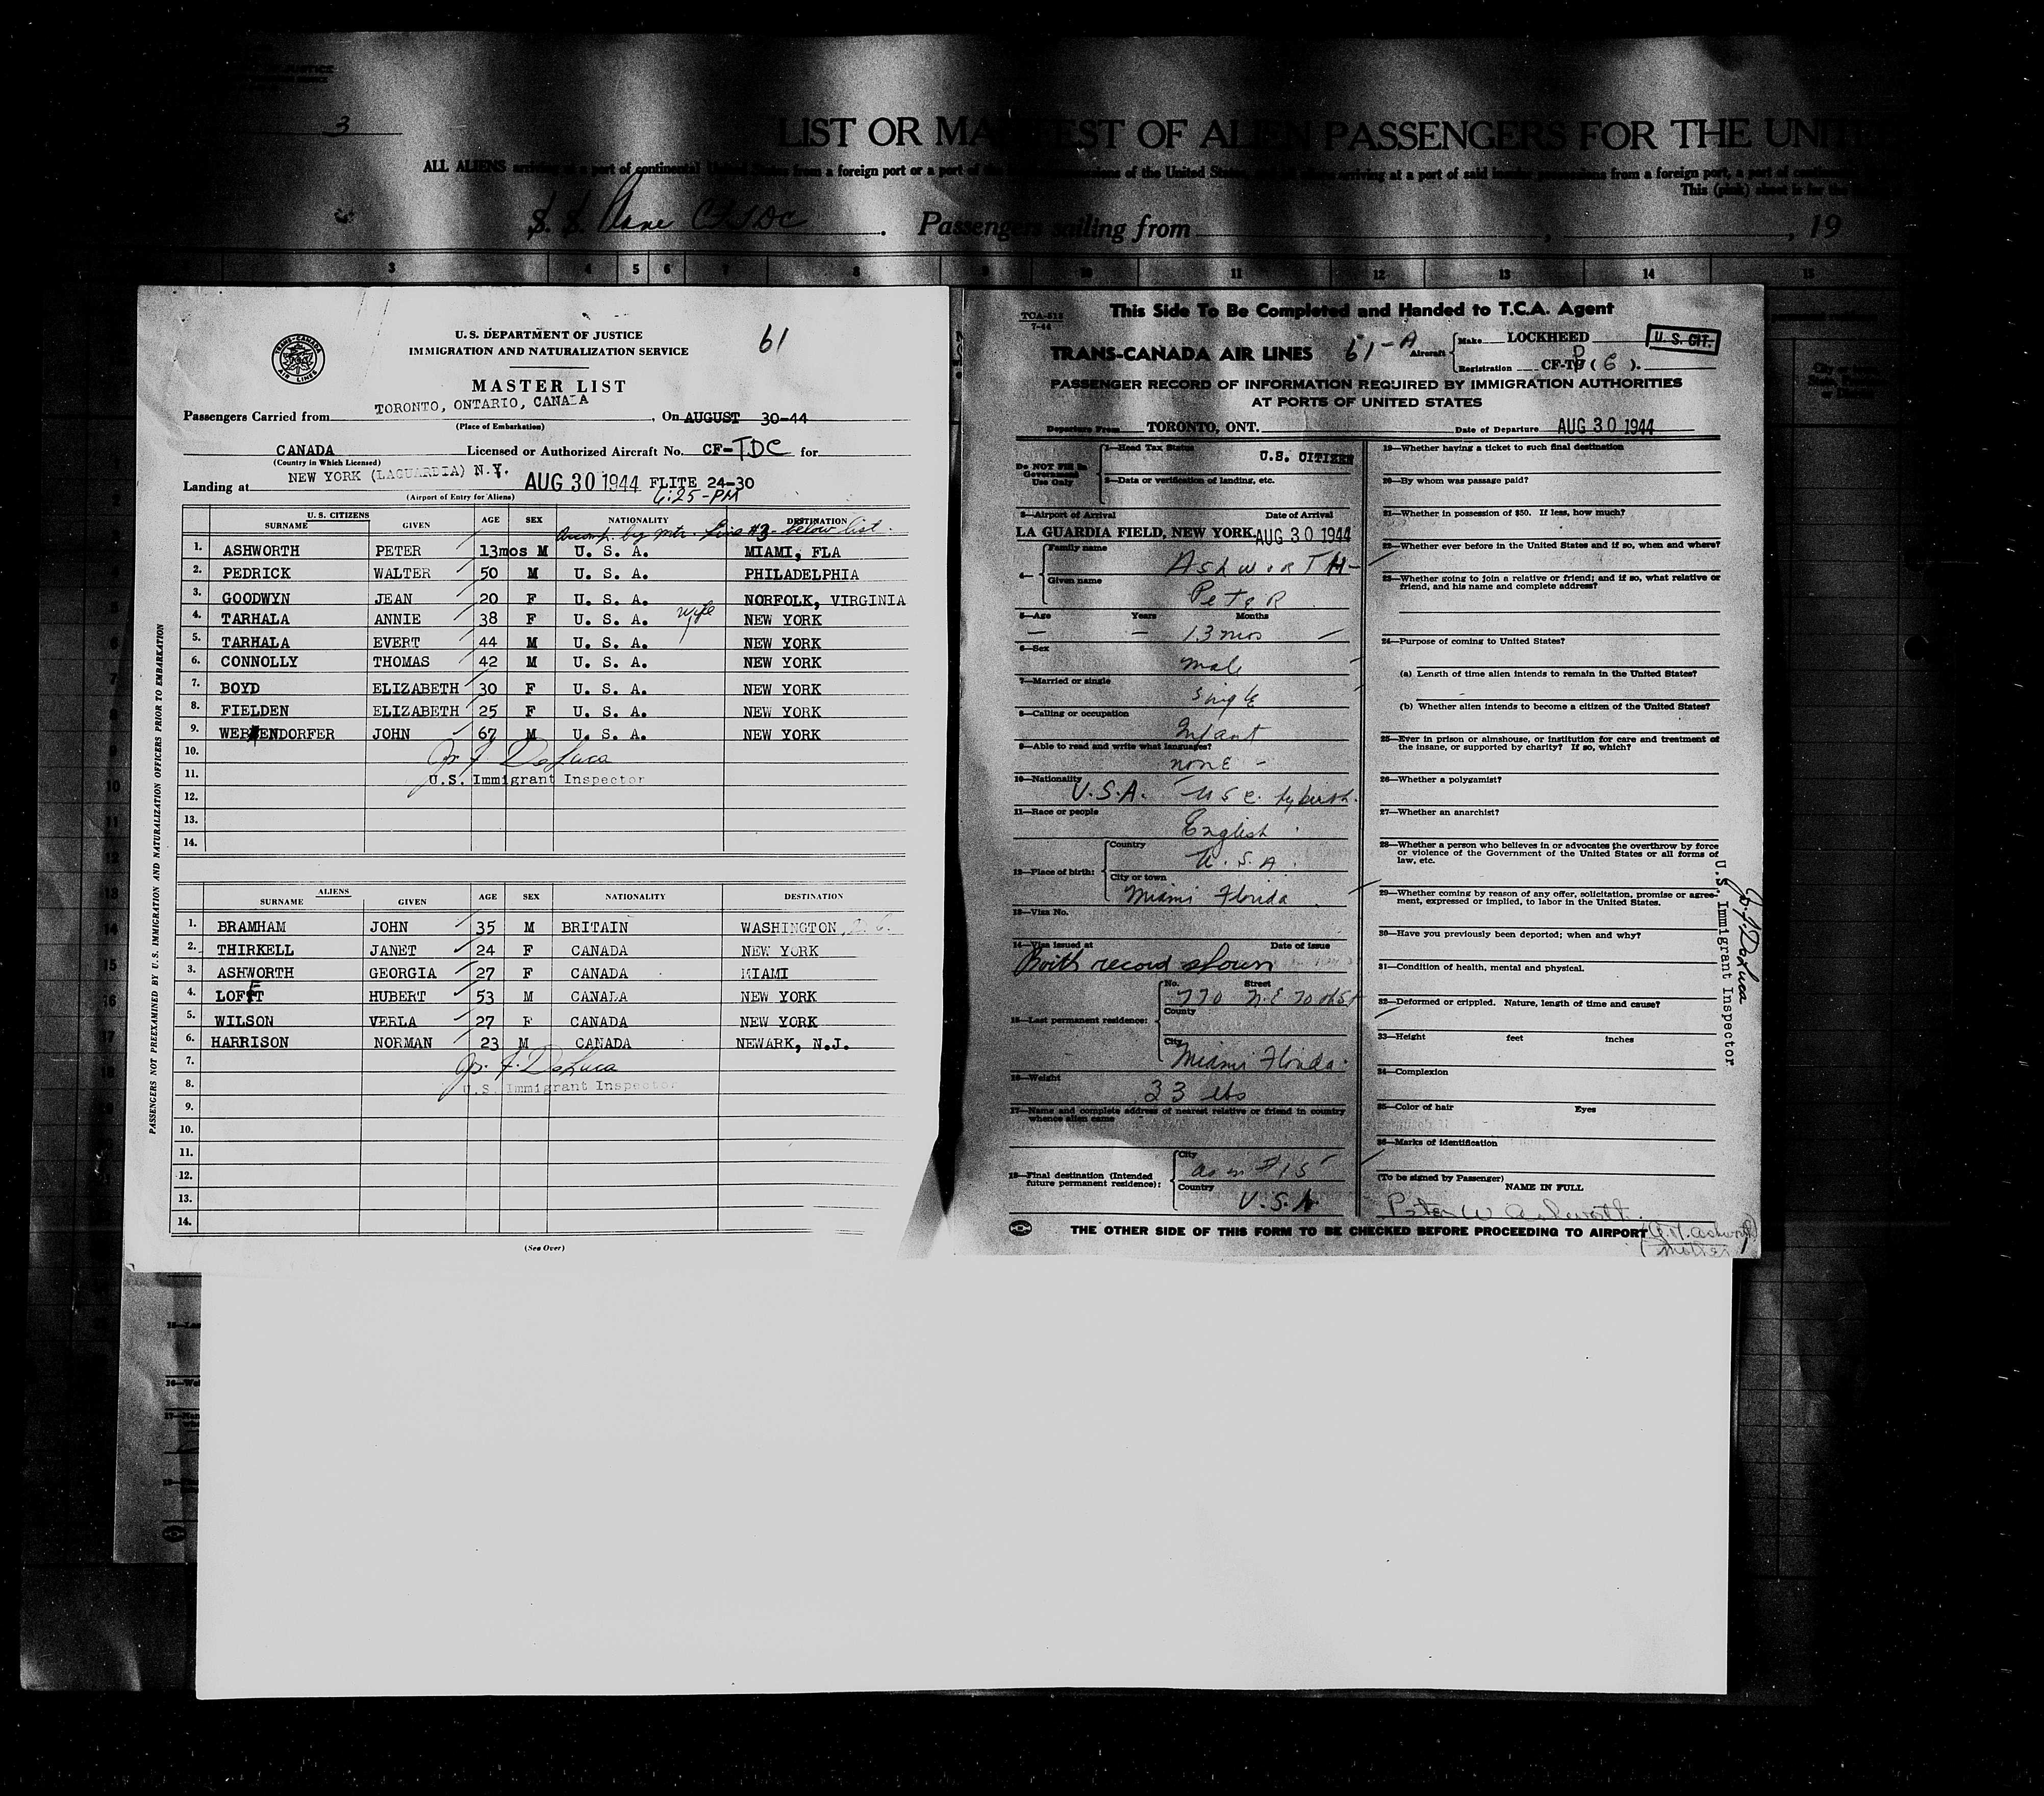 3
LIST OR MANIFEST OF ALIEN PASSENGERS FOR THE UNIT
ALL ALIENS arriving at a port of continental United States from a foreign port or a port of the possessions of the United States, arriving at a port of said possessions from a foreign port, a port of
This (pink) sheet is for the
S. S. Plane Passengers sailing from , , 19
3 4 5 6 7 8 9 10 11 12 13 14 15
TRANS-CANADA AIR LINES
U. S. DEPARTMENT OF JUSTICE
IMMIGRATION AND NATURALIZATION SERVICE
61
MASTER LIST
Passengers Carried from TORONTO, ONTARIO, CANADA, On AUGUST 30-44
(Place of Embarkation)
CANADA Licensed or Authorized Aircraft No. CF-TDC for
(Country in Which Licensed)
Landing at NEW YORK (LAGUARDIA) N.Y. AUG 30 1944 FLITE 24-30
(Airport of Entry for Aliens) 6:25-PM
U.S. CITIZENS
SURNAME GIVEN AGE SEX NATIONALITY DESTINATION
Accomp. by mtr. Line #3 below list.
1. ASHWORTH PETER 13mos M U. S. A. MIAMI, FLA
2. PEDRICK WALTER 50 M U. S. A. PHILADELPHIA
3. GOODWYN JEAN 20 F U. S. A. NORFOLK, VIRGINIA
4. TARHALA ANNIE 38 F U. S. A. wife NEW YORK
5. TARHALA EVERT 44 M U. S. A. NEW YORK
6. CONNOLLY THOMAS 42 M U. S. A. NEW YORK
7. BOYD ELIZABETH 30 F U. S. A. NEW YORK
8. FIELDEN ELIZABETH 25 F U. S. A. NEW YORK
9. WER ENDORFER JOHN 67 M U. S. A. NEW YORK
10.
11. U.S. Immigrant Inspector
12.
13.
14.
ALIENS
SURNAME GIVEN AGE SEX NATIONALITY DESTINATION
1. BRAMHAM JOHN 35 M BRITAIN WASHINGTON, D.C.
2. THIRKELL JANET 24 F CANADA NEW YORK
3. ASHWORTH GEORGIA 27 F CANADA MIAMI
4. LOFFT HUBERT 53 M CANADA NEW YORK
5. WILSON VERLA 27 F CANADA NEW YORK
6. HARRISON NORMAN 23 M CANADA NEWARK, N.J.
7.
8. U.S. Immigrant Inspector
9.
10.
11.
12.
13.
14.
(See Over)
PASSENGERS NOT PREEXAMINED BY U.S. IMMIGRATION AND NATURALIZATION OFFICERS PRIOR TO EMBARKATION
This Side To Be Completed and Handed to T.C.A. Agent
TCA-518
7-44
TRANS-CANADA AIR LINES 61-A Aircraft Make LOCKHEED
Registration CF-TD (C).
U. S. CIT.
PASSENGER RECORD OF INFORMATION REQUIRED BY IMMIGRATION AUTHORITIES
AT PORTS OF UNITED STATES
Departure From TORONTO, ONT. Date of Departure AUG 30 1944
Do NOT Fill In Government Use Only
1—Head Tax Status U.S. CITIZEN
2—Data or verification of landing, etc.
3—Airport of Arrival Date of Arrival
LA GUARDIA FIELD, NEW YORK. AUG 30 1944
4— Family name ASHWORTH
Given name PETER
5—Age Years Months
— — 13 mos —
6—Sex
male
7—Married or single
single
8—Calling or occupation
Infant
9—Able to read and write what languages?
none -
10—Nationality
U.S.A. U S C. by birth.
11—Race or people
English
12—Place of birth: Country
U.S.A.
City or town
Miami Florida
13—Visa No.
14—Visa issued at Date of issue
Birth record shown
15—Last permanent residence: No. Street
770 N.E 70th St
County
City
Miami Florida
16—Weight
33 lbs
17—Name and complete address of nearest relative or friend in country
whence alien came
18—Final destination (Intended
future permanent residence): City as in #15
Country U.S.A
19—Whether having a ticket to such final destination
20—By whom was passage paid?
21—Whether in possession of $50. If less, how much?
22—Whether ever before in the United States and if so, when and where?
23—Whether going to join a relative or friend; and if so, what relative or
friend, and his name and complete address?
24—Purpose of coming to United States?
(a) Length of time alien intends to remain in the United States?
(b) Whether alien intends to become a citizen of the United States?
25—Ever in prison or almshouse, or institution for care and treatment of
the insane, or supported by charity? If so, which?
26—Whether a polygamist?
27—Whether an anarchist?
28—Whether a person who believes in or advocates the overthrow by force
or violence of the Government of the United States or all forms of
law, etc.
29—Whether coming by reason of any offer, solicitation, promise or agree-
ment, expressed or implied, to labor in the United States.
30—Have you previously been deported; when and why?
31—Condition of health, mental and physical.
32—Deformed or crippled. Nature, length of time and cause?
33—Height feet inches
34—Complexion
35—Color of hair Eyes
36—Marks of identification
(To be signed by Passenger)
NAME IN FULL
Peter W Ashworth
THE OTHER SIDE OF THIS FORM TO BE CHECKED BEFORE PROCEEDING TO AIRPORT
(G.H. Ashworth
mother)
U.S. Immigrant Inspector